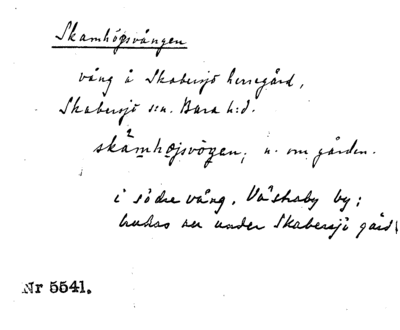 Skamhöjsvången
vång å Skabersjö herregård,
Skabersjö s:n. Bara h:d.
skåmhøjsvøŋen; n. om gården.
i södra vång. Västraby by;
brukas nu under Skabersjö gård
Nr 5541.